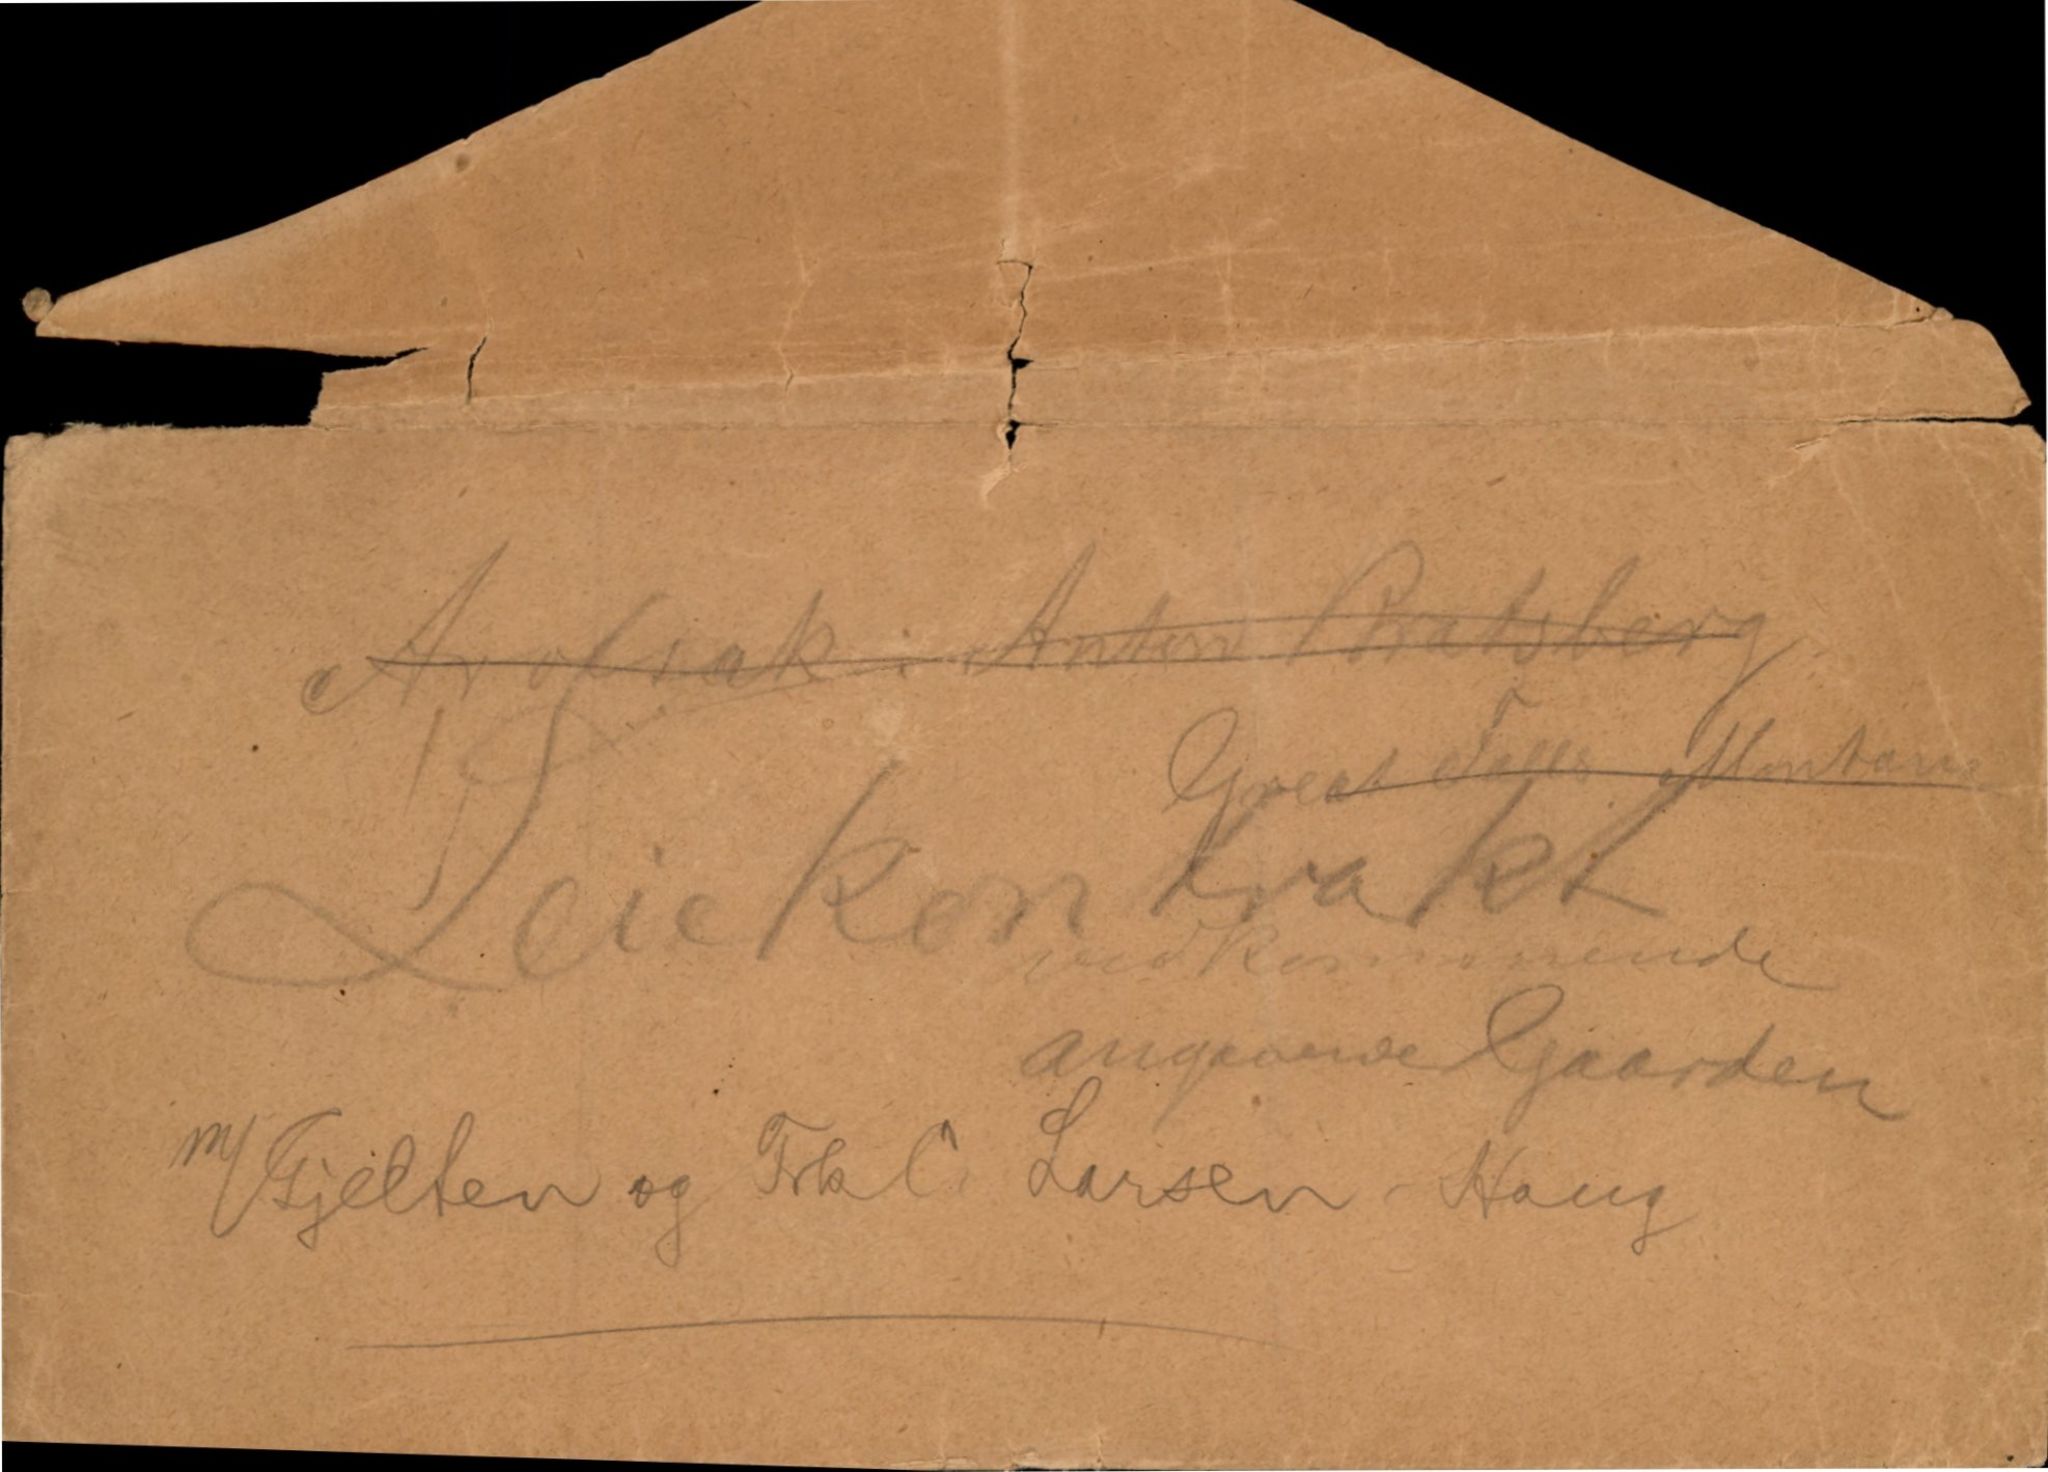 Anton Bratsberg
Great Falls Montana
Leiekontrakt
vedkommende
angaaende Gaarden
m/ Gjelten og Frk C. Larsen - Haug